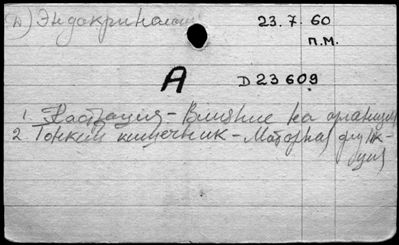 д) Эндокринология 23.7.60
П.М.
А D 23609
1. Кастрация – Влияние на организм
2. Тонкий кишечник – Моторная функ-
ция